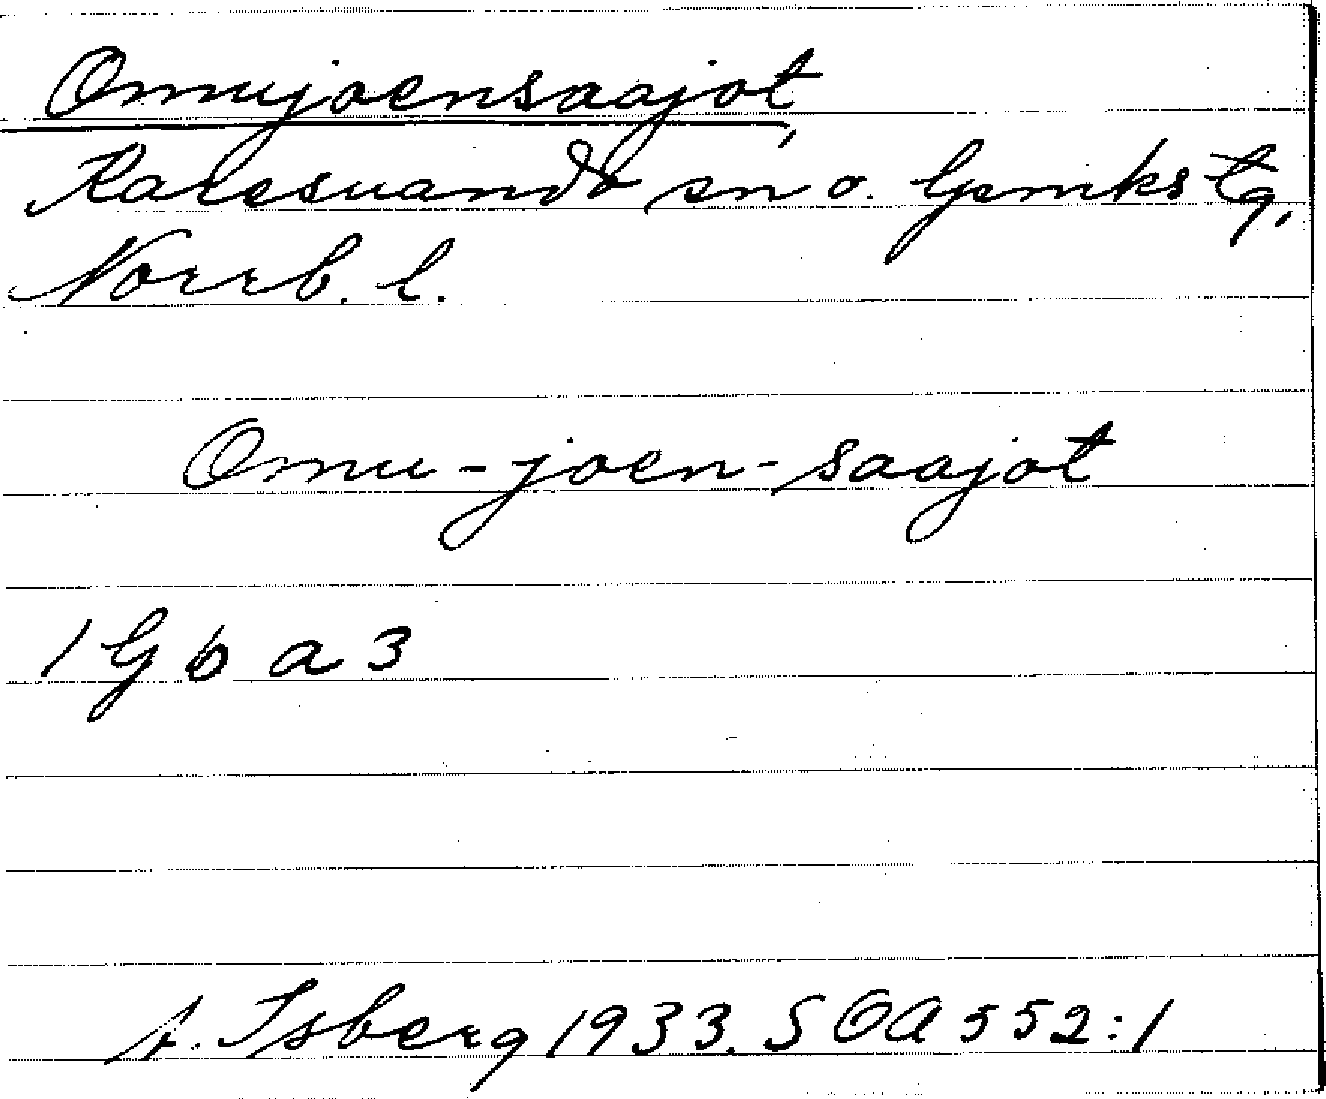 Omujoensaajot,
Karesuando sn o. lpmks tg,
Norrb. l.
Omu-joen-saajot
1 G b a 3
A. Isberg 1933. SOA 552:1